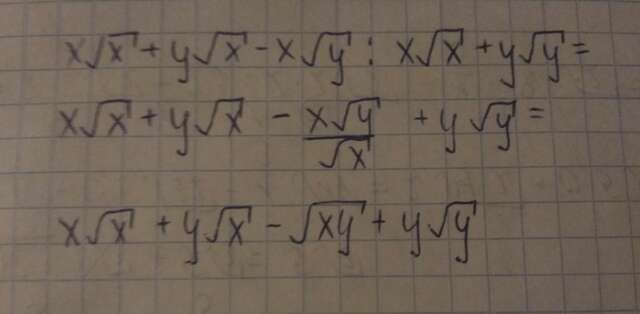 x√x + y√x - x√y : x√x + y√y =
x√x + y√x - x√y/√x + y√y =
x√x + y√x - √xy + y√y